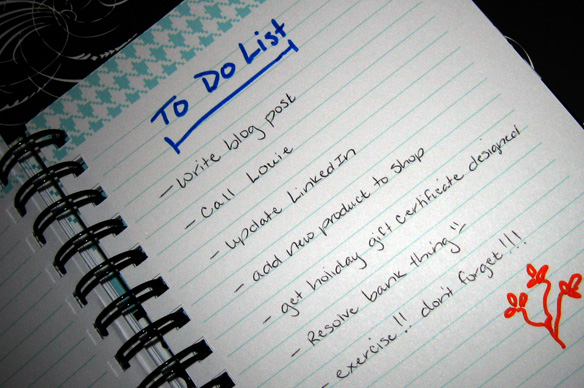 To Do List
- write blog post
- Call Louie
- update LinkedIn
- add new product to shop
- get holiday gift certificate designed
- Resolve bank thing!!
- exercise!! don't forget!!!